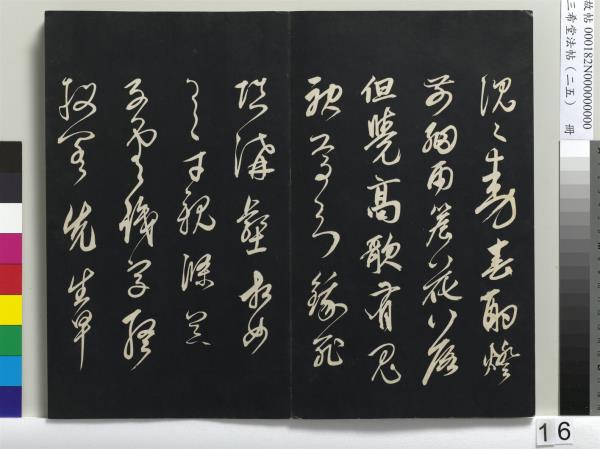 故帖 000182N000000000
三希堂法帖（二五） 冊
沉〻動春酌燈
前細雨簷花落
但覺高歌有鬼
神焉知餓死
填溝壑相如
逸才親滌器
子雲識字終
投閣先生早
16